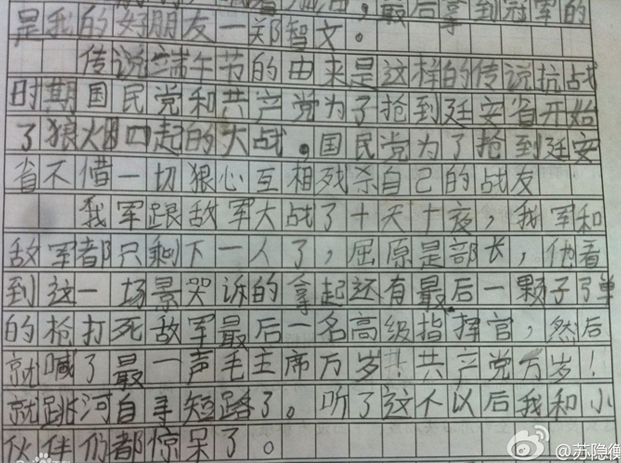 最后拿到冠军的
是我的好朋友一郑智文。
传说端午节的由来是这样的传说抗战
时期国民党和共产党为了抢到廷安省开始
了狼烟四起的大战。国民党为了抢到廷安
省不借一切狠心互相残杀自己的战友
我军跟敌军大战了十天十夜，我军和
敌军都只剩下一人了，屈原是部长，他看
到这一场景哭诉的拿起还有最后一颗子弹
的枪打死敌军最后一名高级指挥官，然后
就喊了最一声毛主席万岁！共产党万岁！
就跳河自寻短路了。听了这个以后我和小
伙伴们都惊呆了。
@苏隐衡